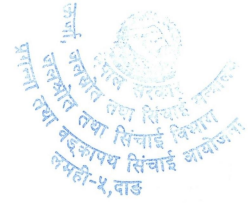 नेपाल सरकार
ऊर्जा, जलस्रोत तथा सिंचाई मन्त्रालय
जलस्रोत तथा सिंचाई विभाग
प्रगन्ना तथा बड्कापथ सिंचाई आयोजना
लमही-५, दाङ